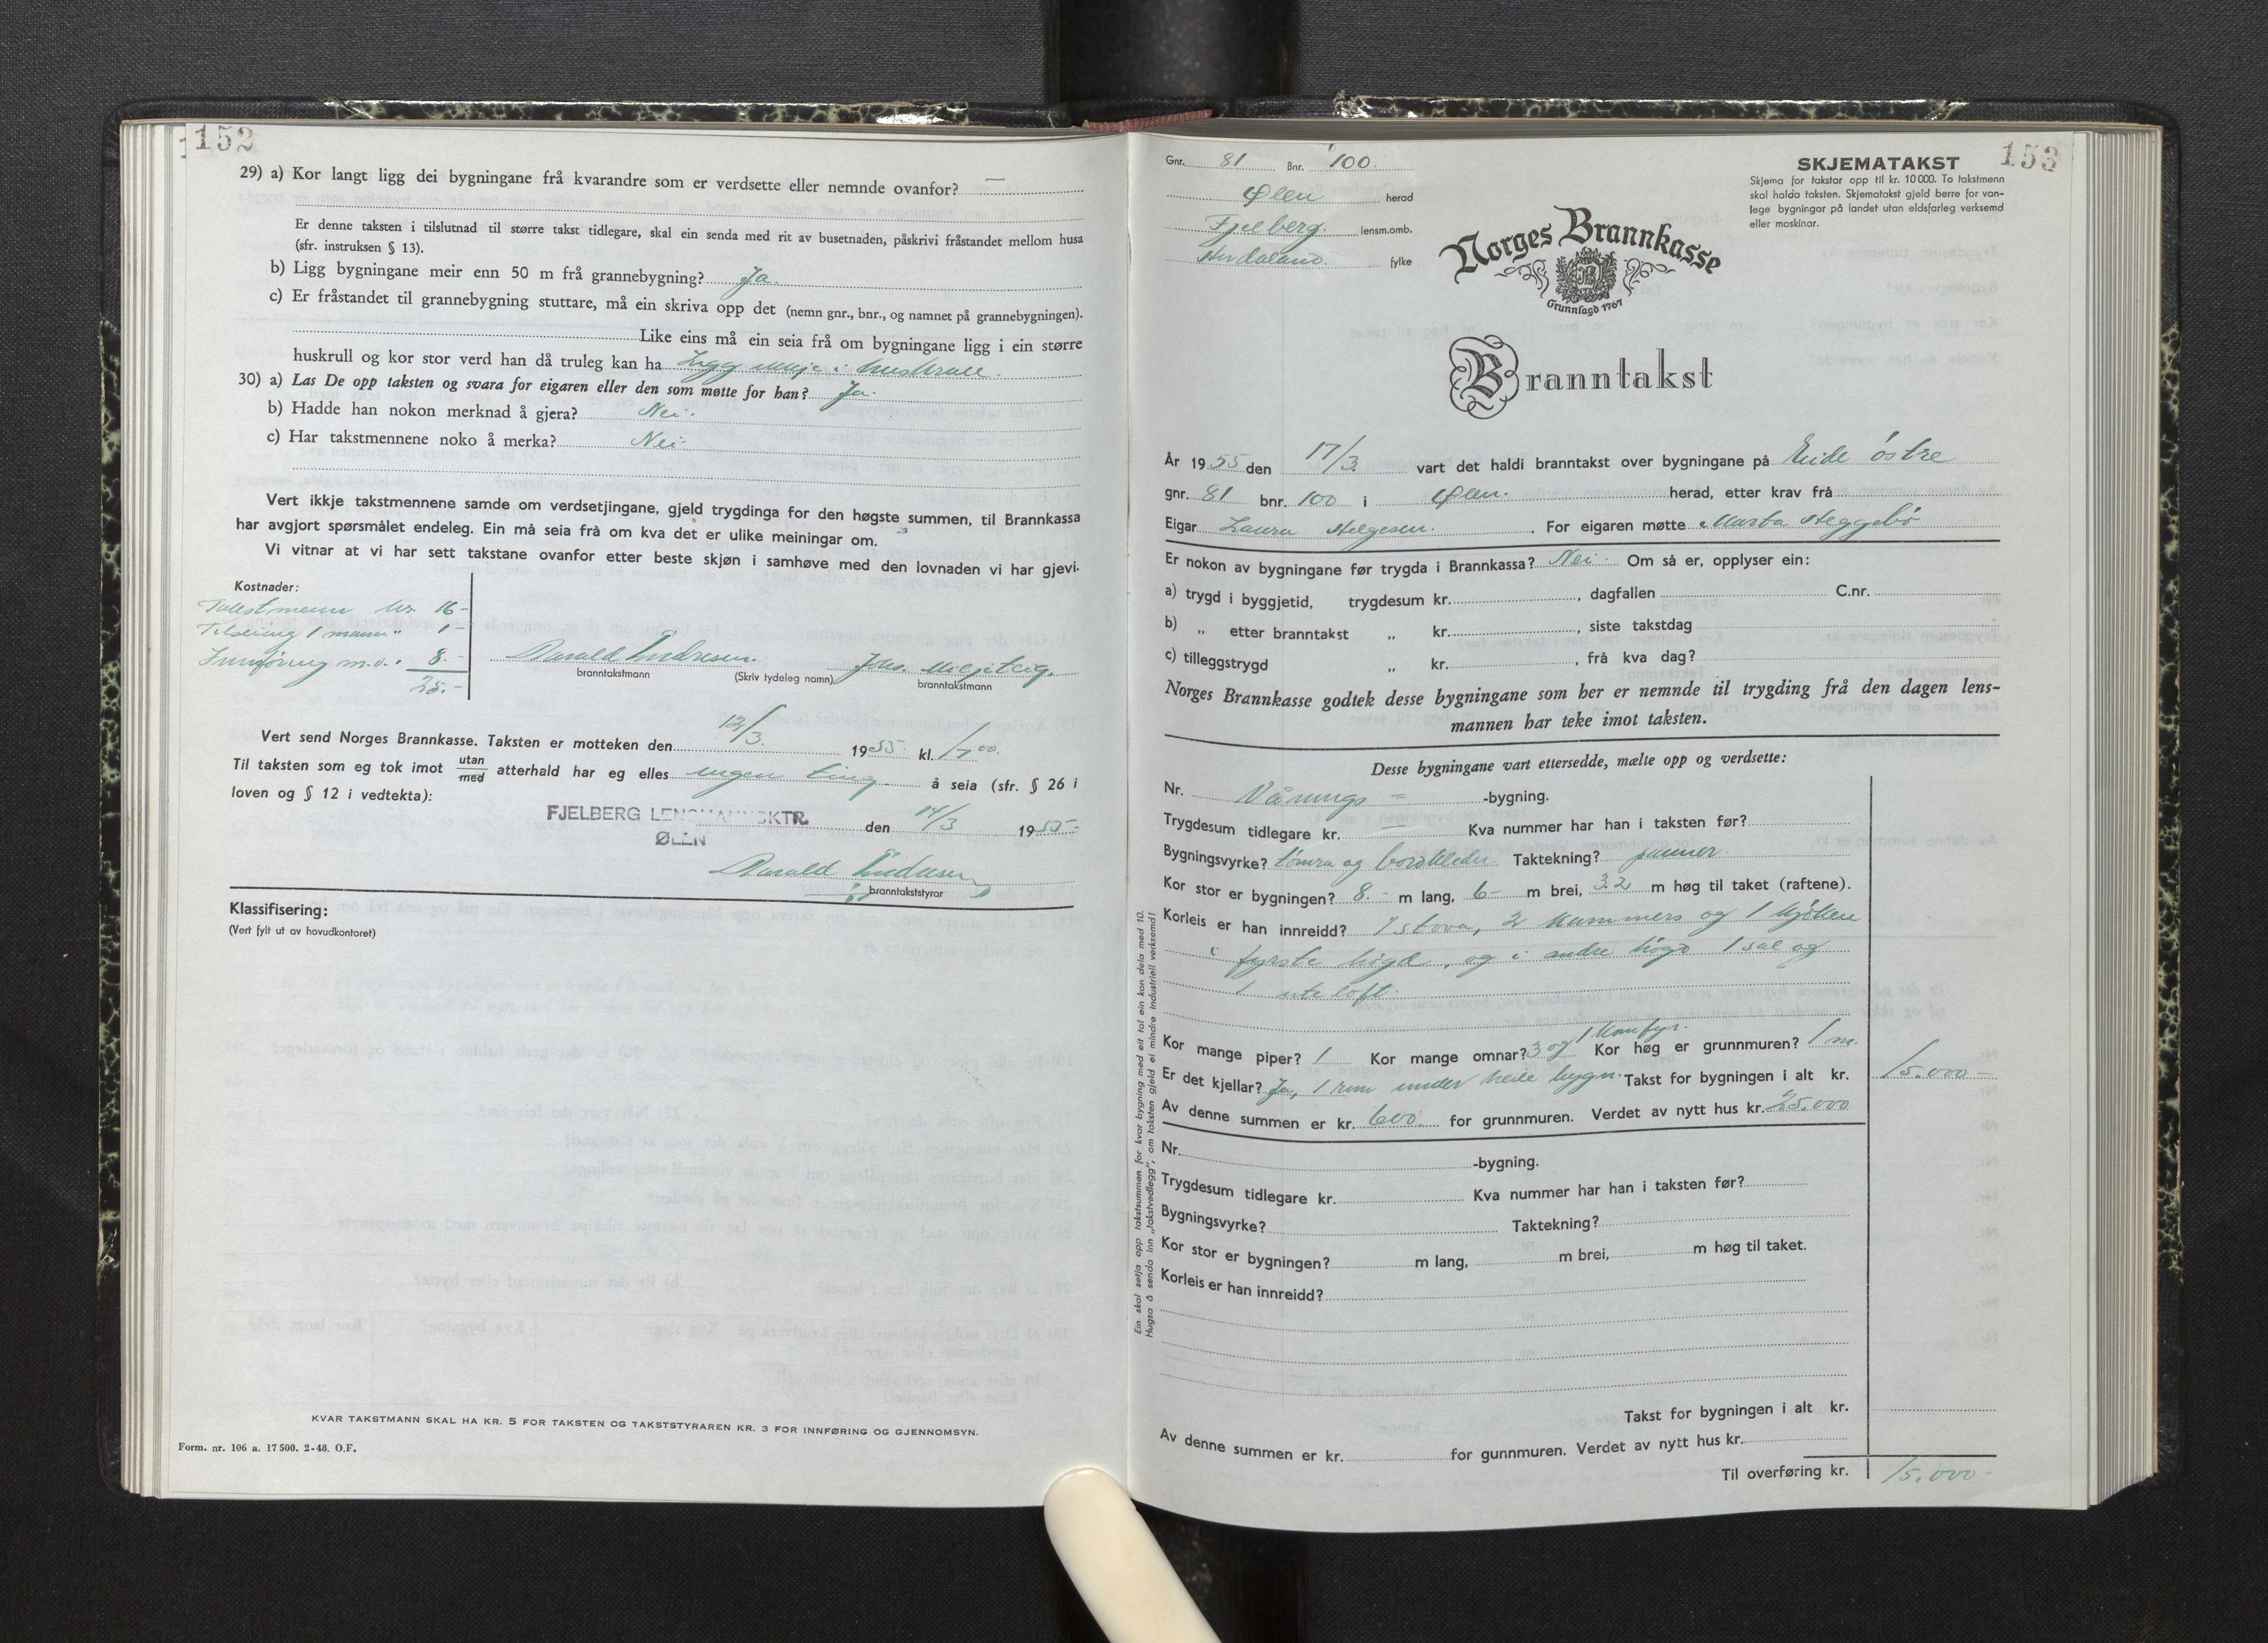 152
29) a) Kor langt ligg dei bygningane frå kvarandre som er verdsette eller nemnde ovanfor? —
Er denne taksten i tilslutnad til større takst tidlegare, skal ein senda med rit av busetnaden, påskrivi fråstandet mellom husa
(sfr. instruksen § 13).
b) Ligg bygningane meir enn 50 m frå grannebygning? Ja.
c) Er fråstandet til grannebygning stuttare, må ein skriva opp det (nemn gnr., bnr., og namnet på grannebygningen).
Like eins må ein seia frå om bygningane ligg i ein større
huskrull og kor stor verd han då truleg kan ha Ligg ikkje i huskrull.
30) a) Las De opp taksten og svara for eigaren eller den som møtte for han? Ja.
b) Hadde han nokon merknad å gjera? Nei.
c) Har takstmennene noko å merka? Nei
Vert ikkje takstmennene samde om verdsetjingane, gjeld trygdinga for den høgste summen, til Brannkassa
har avgjort spørsmålet endeleg. Ein må seia frå om kva det er ulike meiningar om.
Vi vitnar at vi har sett takstane ovanfor etter beste skjøn i samhøve med den lovnaden vi har gjevi.
Kostnader:
Takstmenn kr. 16-
Tilseiing 1 mann " 1-
Innføring m.v. " 8.-
25.-
Harald Endresen. Johs. Miljeteig.
branntakstmann (Skriv tydeleg namn) branntakstmann
Vert send Norges Brannkasse. Taksten er motteken den 12/3. 1955. kl. 17 00.
Til taksten som eg tok imot utan/med atterhald har eg elles ingen ting å seia (sfr. § 26 i
loven og § 12 i vedtekta):
FJELBERG LENSMANNSKTR.
ØLEN
den 14/3 1955-
Harald Endresen
branntakststyrar
Klassifisering:
(Vert fylt ut av hovudkontoret)
KVAR TAKSTMANN SKAL HA KR. 5 FOR TAKSTEN OG TAKSTSTYRAREN KR. 3 FOR INNFØRING OG GJENNOMSYN.
Form. nr. 106 a. 17 500. 2-48. O.F.
153
Gnr. 81 Bnr. 100.
Ølen herad
Fjelberg. lensm.omb.
Hordaland. fylke
SKJEMATAKST
Skjema for takstar opp til kr. 10 000. To takstmenn
skal halda taksten. Skjematakst gjeld berre for van-
lege bygningar på landet utan eldsfarleg verksemd
eller maskinar.
Norges Brannkasse
Grunnlagd 1767
Branntakst
År 1955 den 17/3. vart det haldi branntakst over bygningane på Eide östre
gnr. 81 bnr. 100 i Ølen. herad, etter krav frå
Eigar Laura Helgesen. For eigaren møtte Marta Heggebö
Er nokon av bygningane før trygda i Brannkassa? Nei. Om så er, opplyser ein:
a) trygd i byggjetid, trygdesum kr. , dagfallen C.nr.
b) „ etter branntakst „ kr. , siste takstdag
c) tilleggstrygd „ kr. , frå kva dag?
Norges Brannkasse godtek desse bygningane som her er nemnde til trygding frå den dagen lens-
mannen har teke imot taksten.
Desse bygningane vart ettersedde, mælte opp og verdsette:
Nr. Vånings = -bygning.
Trygdesum tidlegare kr. — Kva nummer har han i taksten før?
Bygningsvyrke? tömra og bordkledn. Taktekning? panner.
Kor stor er bygningen? 8.- m lang, 6- m brei, 3.2 m høg til taket (raftene).
Korleis er han innreidd? 1 stova, 2 kammers og 1 kjöken
i fyrste högd, og i andre högd 1 sal og
1 uteloft.
Kor mange piper? 1 Kor mange omnar? 3 og 1 komfyr. Kor høg er grunnmuren? 1 m.
Er det kjellar? Ja, 1 rum under heile bygn. Takst for bygningen i alt kr. 15.000-
Av denne summen er kr. 600. for grunnmuren. Verdet av nytt hus kr. 25.000
Nr. -bygning.
Trygdesum tidlegare kr. Kva nummer har han i taksten før?
Bygningsvyrke? Taktekning?
Kor stor er bygningen? m lang, m brei, m høg til taket.
Korleis er han innreidd?
Takst for bygningen i alt kr.
Av denne summen er kr. for gunnmuren. Verdet av nytt hus kr.
Til overføring kr. 15.000-
Ein skal setja opp takstsummen for kvar bygning med eit tal ein kan dela med 10.
Hugsa å senda inn „takstvedlegg", om taksten gjeld ei mindre industriell verksemd!